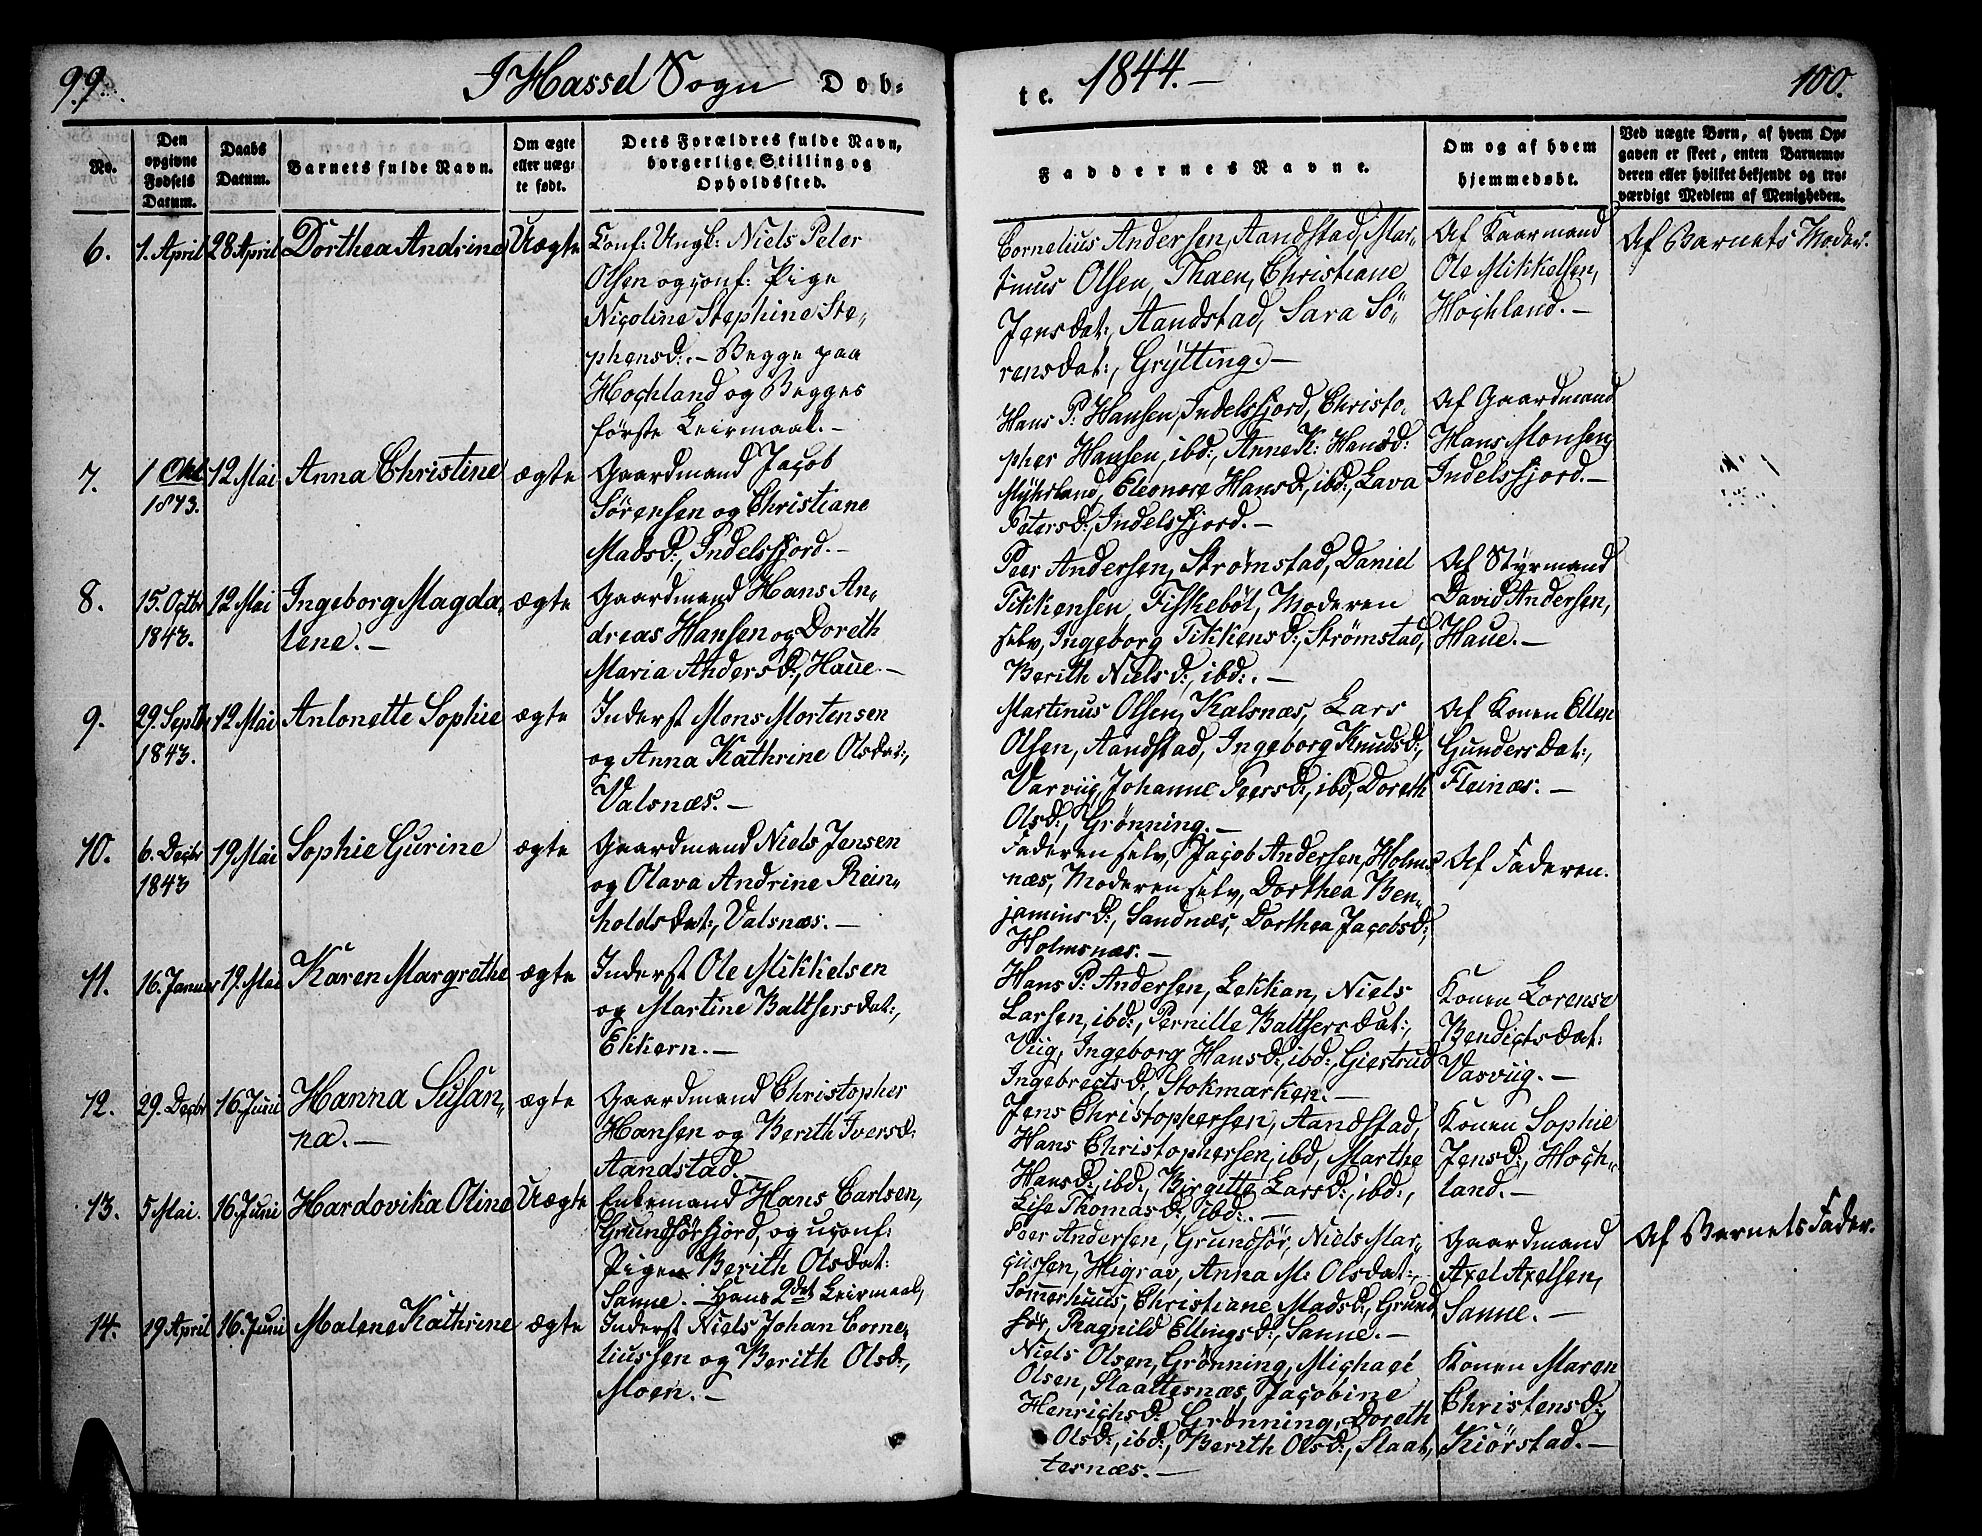 99.
I Hassel Sogn Døb-
te. 1844.-
100.
No.
Den
opgivne
Fødsels
Datum.
Daabs
Datum.
Barnets fulde Navn.
Om ægte
eller uæg-
te født.
Dets Forældres fulde Navn,
borgerlige Stilling og
Opholdssted.
Faddernes Navne.
Om og af hvem
hjemmedøbt.
Ved uægte Børn, af hvem Op-
gaven er skeet, enten Barnemo-
deren eller hvilket bekjendt og tro-
værdigt Medlem af Menigheden.
6.
1. April
28 April
Dorthea Andrine
Uægte
Conf: Ungk: Niels Peter
Olsen og conf: Pige
Nicoline Stephine Ste-
phensd:.- Begge paa
Hochland og Begges
første Leirmaal.-
Cornelius Andersen, Aandstad, Mar-
tinus Olsen, Thaen, Christiane
Jensdat:, Aandstad, Sara Sö-
rensdat:, Grÿtting.-
Af Kaarmand
Ole Mikkelsen,
Hochland.-
Af Barnets Moder.
7.
1 Okt.
1843.
12 Mai
Anna Christine
ægte
Gaardmand Jacob
Sörensen og Christiane
Madsd:, Indelsfjord.-
Hans P: Hansen, Indelsfjord, Christo-
pher Hansen, ibd:, Anne K: Hansd:
Mÿhrland, Eleonore Hansd:, ibd:, Lava
Petersd:, Indelsfjord.-
Af Gaardmand
Hans Monsen,
Indelsfjord.-
8.
15. Octbr
1843.
12 Mai
Ingeborg Magda-
lene.-
ægte
Gaardmand Hans An-
dreas Hansen og Doreth
Maria Andersd:, Haue.-
Peer Andersen, Strømstad, Daniel
Tikkensen, Fiskebøl, Moderen
selv, Ingeborg Tikkensd:, Strømstad,
Berith Nielsd:, ibd:.-
Af Styrmand
David Andersen,
Haue.-
9.
29. Septbr
1843.
12 Mai
Antonette Sophie
ægte
Inderst Mons Mortensen
og Anna Kathrine Olsdat:,
Valsnæs.-
Martinus Olsen, Kalsnæs, Lars
Olsen, Aandstad, Ingeborg Knudsd:,
Varviig, Johanne Peersd:, ibd, Doreth
Olsd:, Grønning.-
Af Konen Ellen
Gundersdat:,
Fleinæs.-
10.
6. Decbr
1843
19 Mai
Sophie Gurine
ægte
Gaardmand Niels Jensen
og Olava Andrine Rein-
holdsdat:, Valsnæs.-
Faderen selv, Jacob Andersen, Holms-
næs, Moderen selv, Dorthea Ben-
jaminsd:, Sandnæs, Dorthea Jacobsd:,
Holmsnæs.-
Af Faderen.
11.
16. Januar
19. Mai
Karen Margrethe
ægte
Inderst Ole Mikkelsen
og Martine Balthersdat:,
Ekkern.-
Hans P: Andersen, Lekkan, Niels
Larsen, ibd:, Pernille Balthersdat:,
Viig, Ingeborg Hansd:, ibd:, Giertrud
Ingebrectsd:, Stokmarken.-
Konen Lorense
Bendictsdat:
Vasviig.-
12.
29. Decbr
16. Juni
Hanna Susan-
na.-
ægte
Gaardmand Christopher
Hansen og Berith Iversd:
Aandstad.
Jens Christophersen, Aandstad,
Hans Christophersen, ibd, Marthe
Hansd:, ibd:, Birgitte Larsd:, ibd:,
Lisa Thomasd:, ibd:.-
Konen Sophie
Jensd:, Hoch-
land.-
13.
5 Mai.
16. Juni
Hardovika Oline
Uægte
Enkemand Hans Carlsen,
Grundförfjord, og uconf:
Pigen Berith Olsdat:
Sanne.- Hans 2det Leirmaal,
Peer Andersen, Grundför, Niels Mar-
cussen, Higrav, Anna M: Olsdat:,
Somerhuus, Christiane Madsd:, Grund-
för, Ragnild Ellingsd:, Sanne.-
Gaardmand
Axel Axelsen,
Sanne.-
Af Barnets Fader.
14.
19 April
16. Juni
Malene Kathrine
ægte
Inderst Niels Johan Corne-
liussen og Berith Olsd:,
Moen.-
Niels Olsen, Grønning, Michael
Olsen, Slaattesnæs, Jacobine
Henrichsd:, Grønning, Doreth
Olsd:, ibd:, Berith Olsd:, Slaat-
tesnæs.-
Konen Maren
Christensd:,
Kiörstad.-